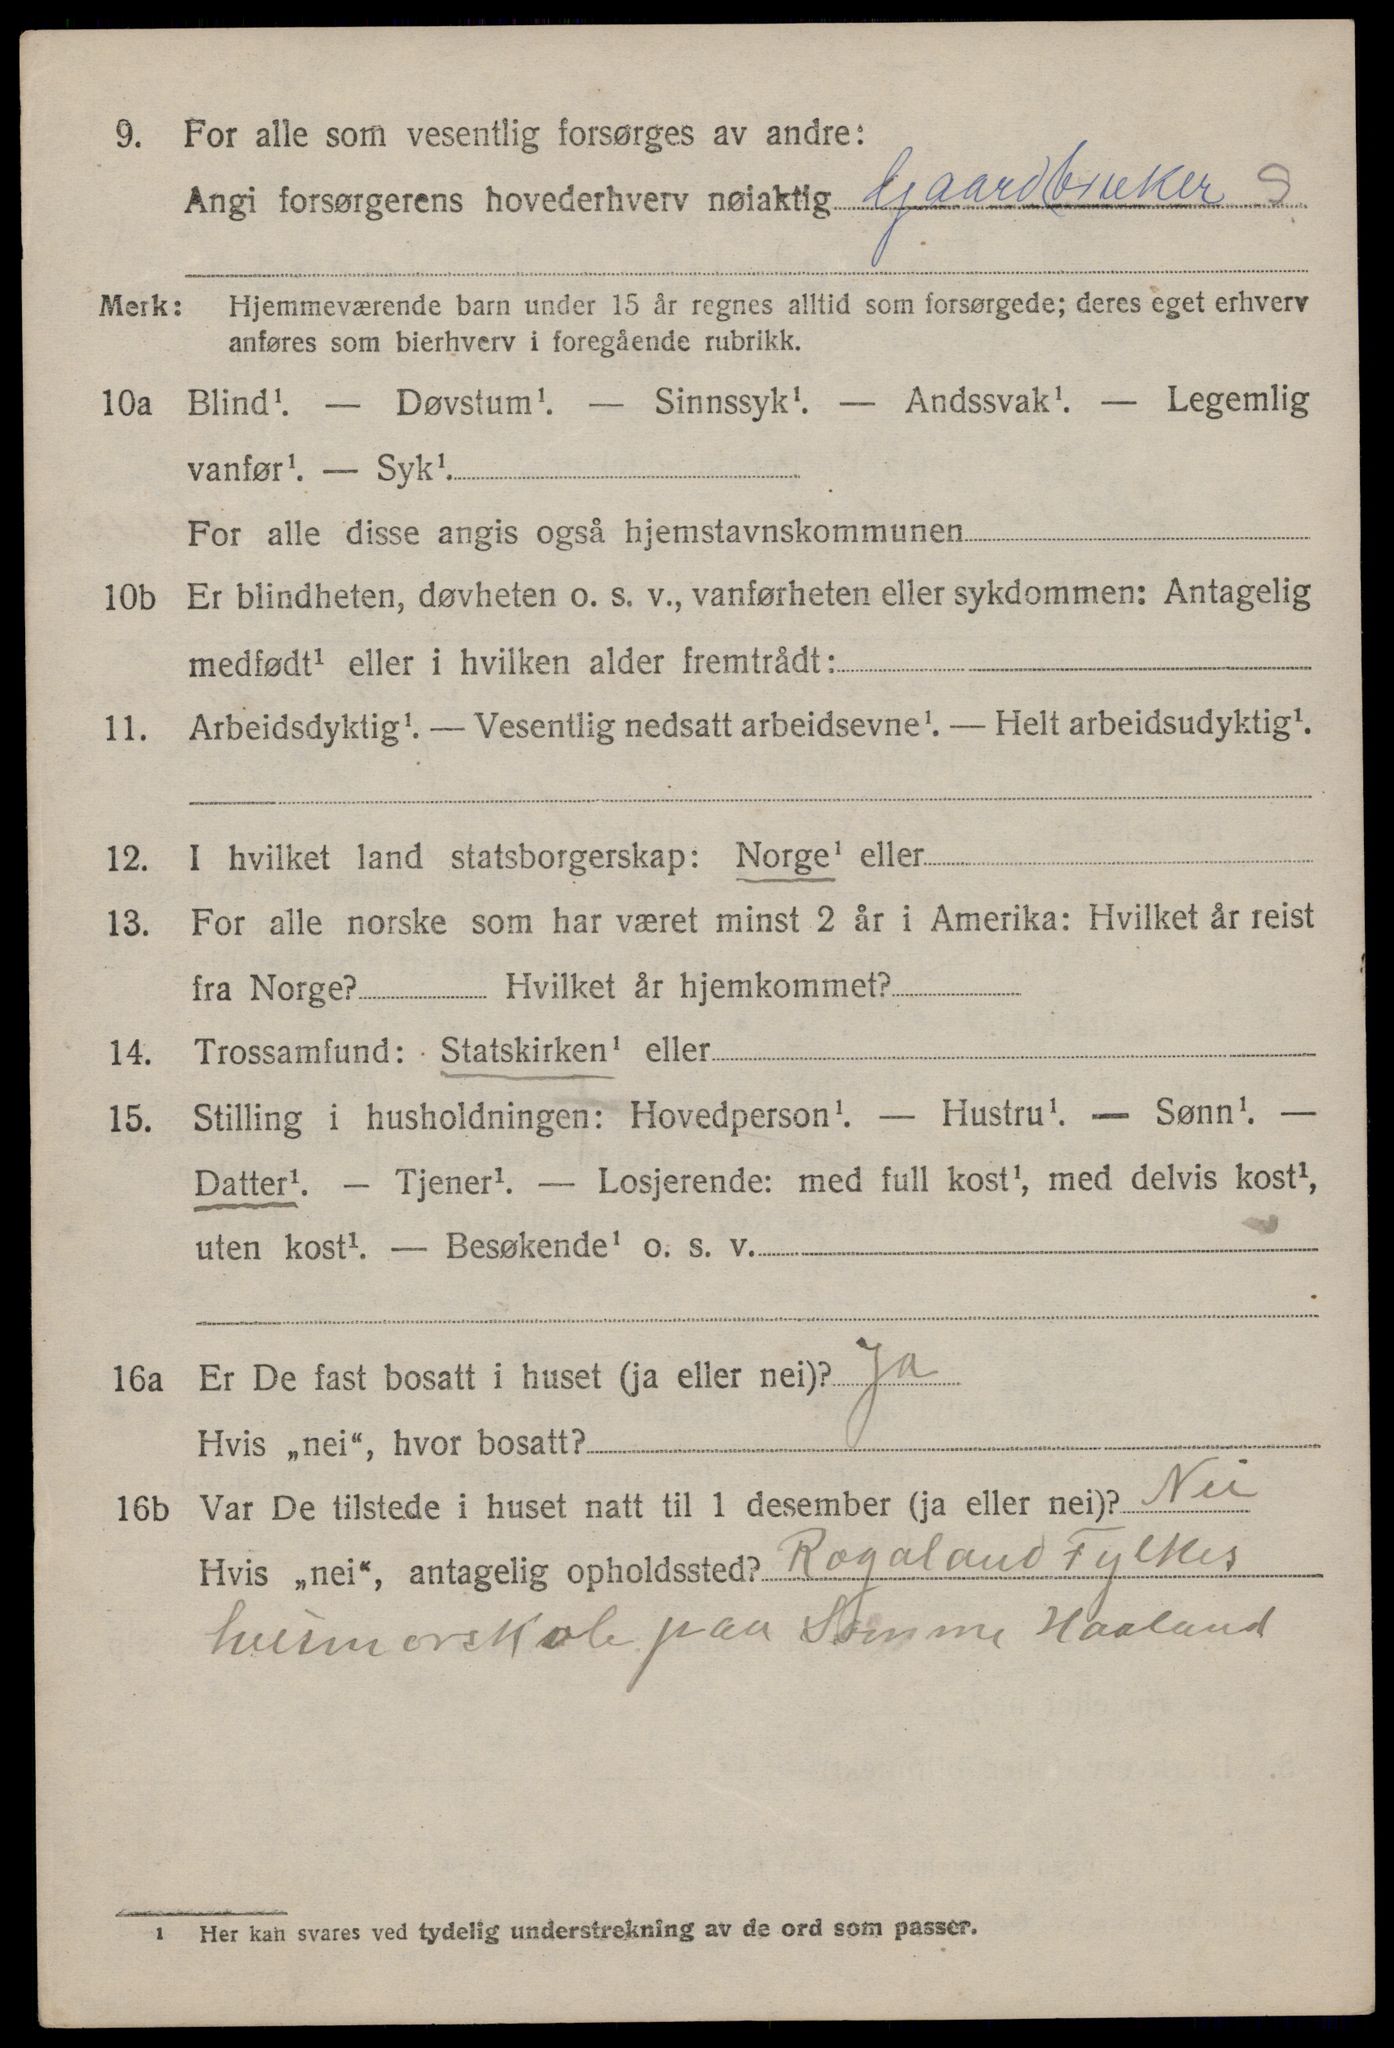 9. For alle som vesentlig forsørges av andre:
Angi forsørgerens hovederhverv nøiaktig Gaardbruker S
Merk: Hjemmeværende barn under 15 år regnes alltid som forsørgede; deres eget erhverv
anføres som bierhverv i foregående rubrikk.
10a Blind¹. — Døvstum¹. — Sinnssyk¹. — Andssvak¹. — Legemlig
vanfør¹. — Syk¹.
For alle disse angis også hjemstavnskommunen
10b Er blindheten, døvheten o. s. v., vanførheten eller sykdommen: Antagelig
medfødt¹ eller i hvilken alder fremtrådt:
11. Arbeidsdyktig¹. — Vesentlig nedsatt arbeidsevne¹. — Helt arbeidsudyktig¹.
12. I hvilket land statsborgerskap: Norge¹ eller
13. For alle norske som har været minst 2 år i Amerika: Hvilket år reist
fra Norge? Hvilket år hjemkommet?
14. Trossamfund: Statskirken¹ eller
15. Stilling i husholdningen: Hovedperson¹. — Hustru¹. — Sønn¹. —
Datter¹. — Tjener¹. — Losjerende: med full kost¹, med delvis kost¹,
uten kost¹. — Besøkende¹ o. s. v.
16a Er De fast bosatt i huset (ja eller nei)? Ja
Hvis „nei“, hvor bosatt?
16b Var De tilstede i huset natt til 1 desember (ja eller nei)? Nei
Hvis „nei“, antagelig opholdssted? Rogaland Fylkes
husmorskole paa Sømme Haaland
1 Her kan svares ved tydelig understrekning av de ord som passer.